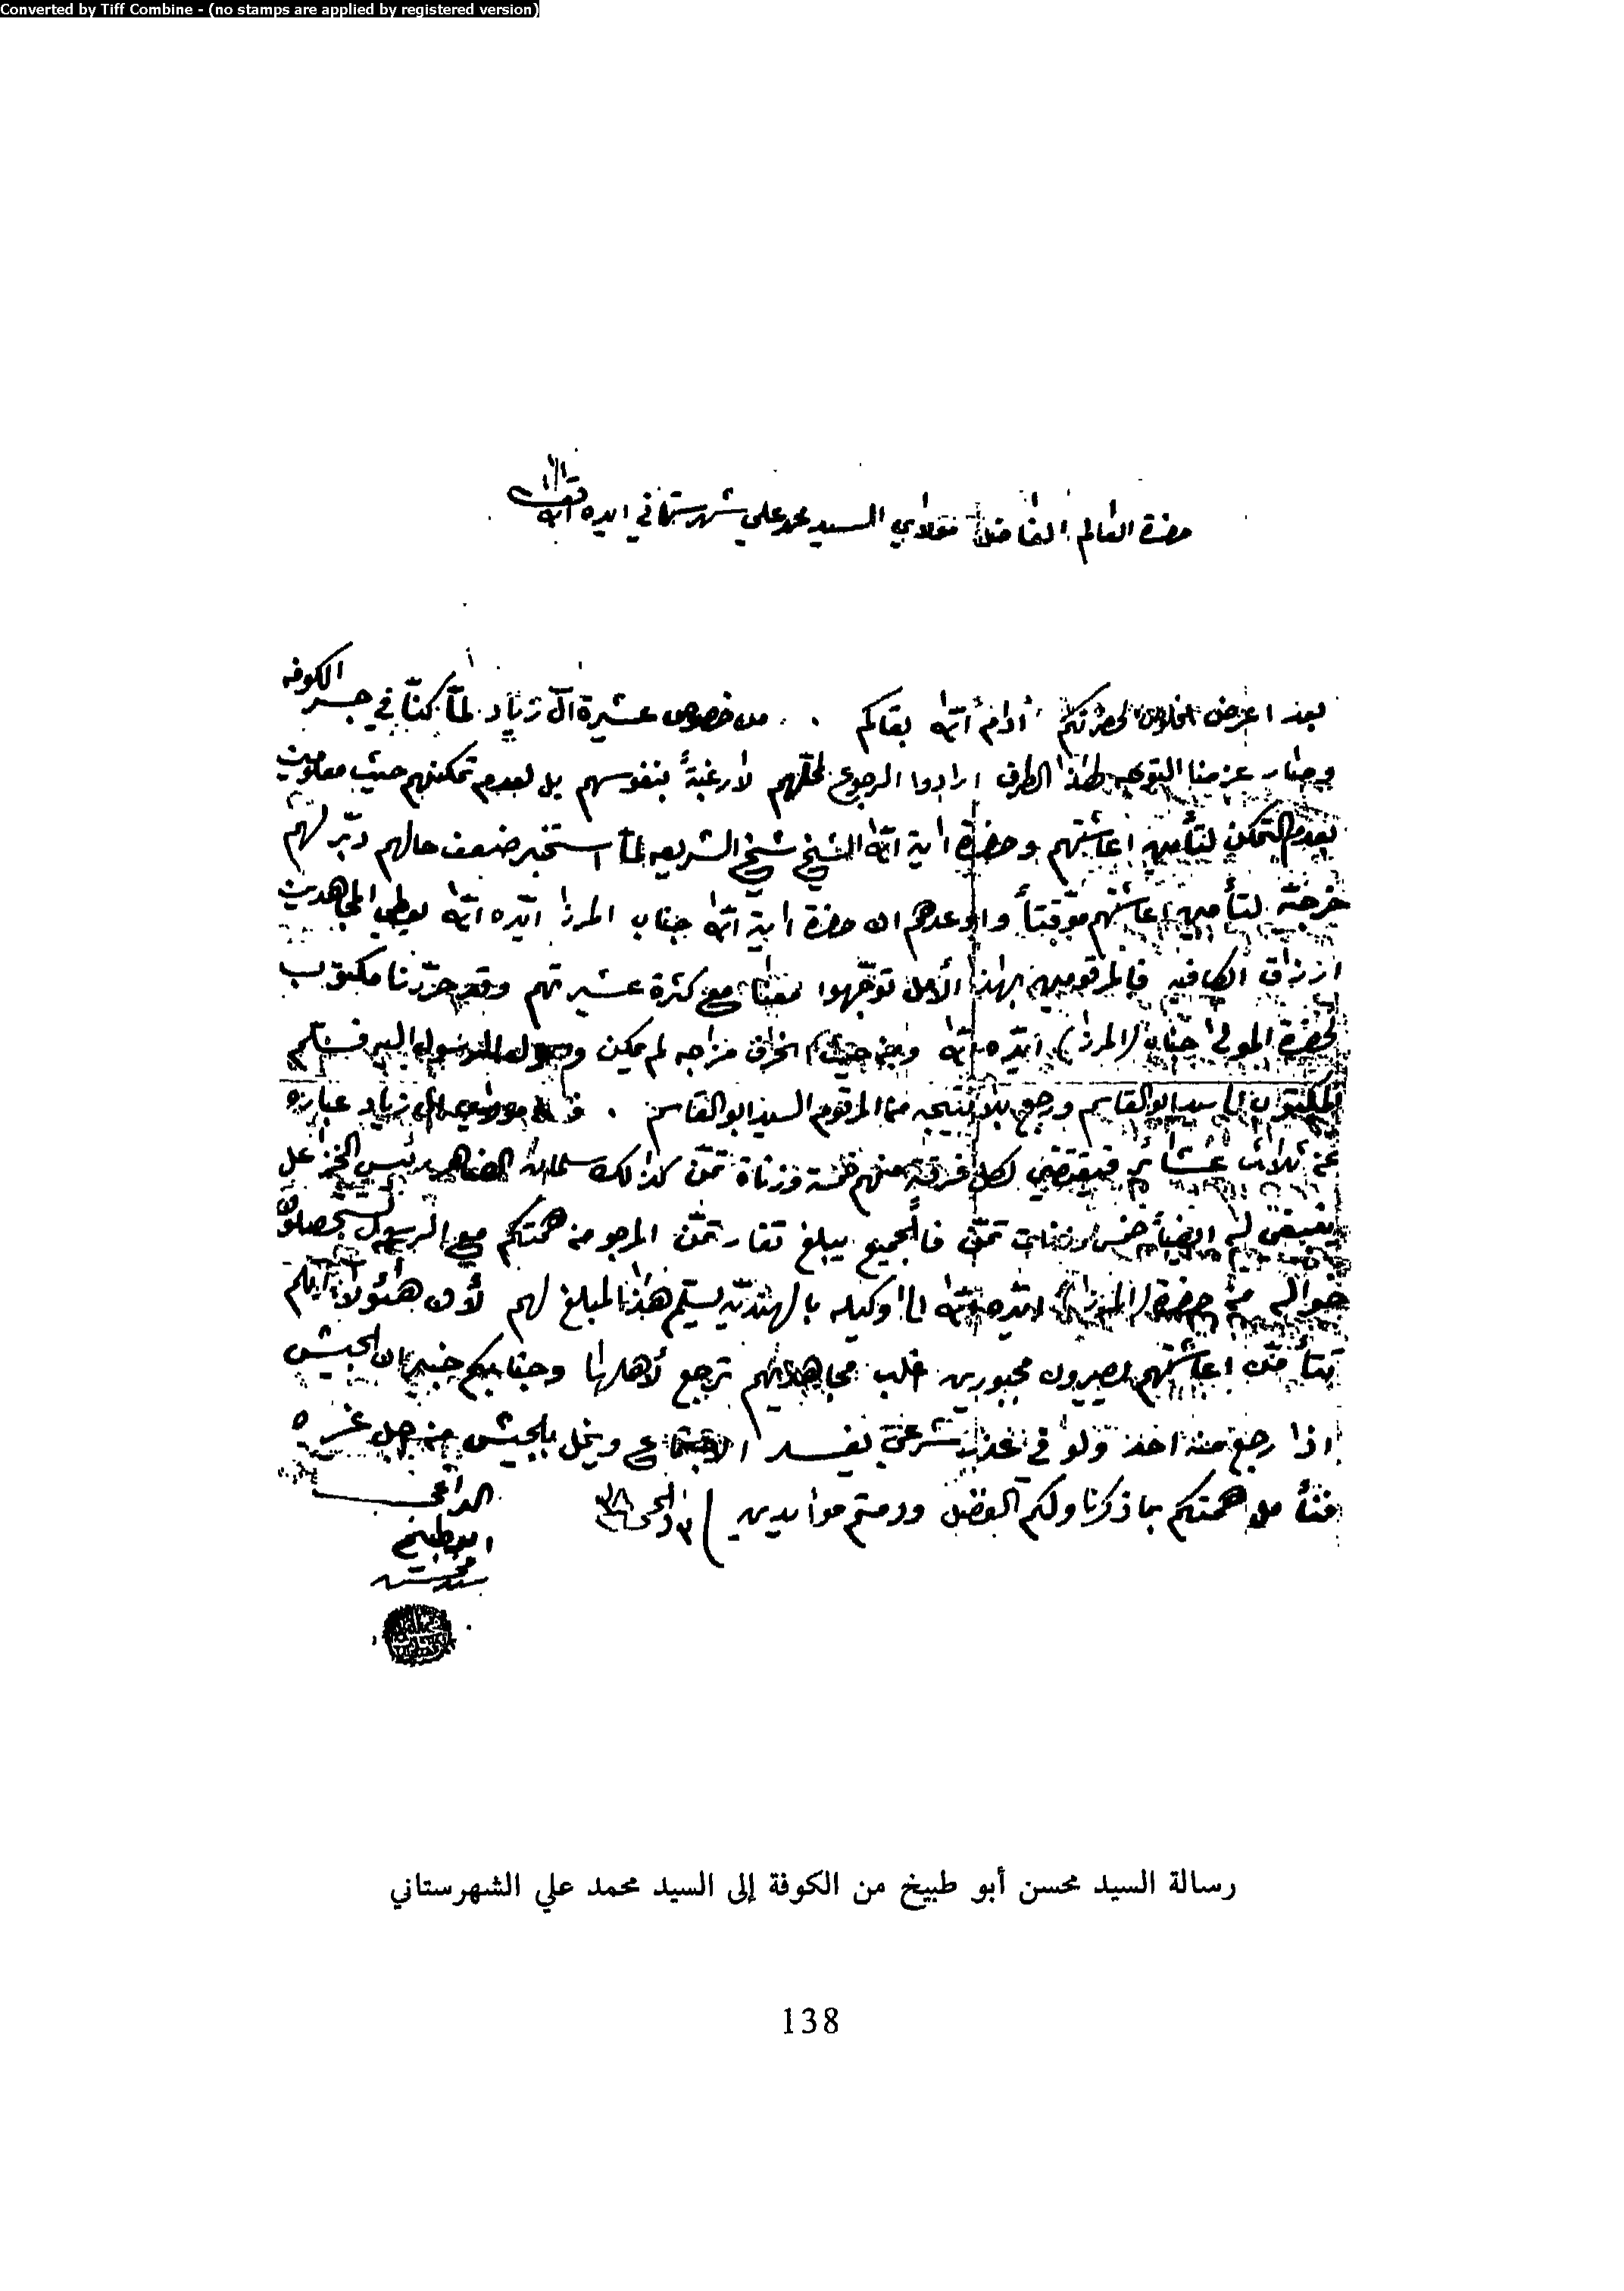 Converted by Tiff Combine - (no stamps are applied by registered version)
حضرة العالم الفاضل مولاي السيد محمد علي شهرستاني ايده الله تعالى
بعد اعرض لحضرتكم أدام الله بقاكم . من خصوص عشيرة آل زياد لمّا كنّا في جسر الكوفه
وصار عزمنا التوجه لهذا الطرف ارادوا الرجوع لمحلّهم لا رغبةً بنفوسهم بل لعدم تمكنهم حيث
بعدم التمكن لتأمين اعاشتهم وحضرة اية الله الشيخ شيخ الشريعه لمّا استخبر ضعف حالهم دبّر لهم
خرجيّة لتأمين اعاشتهم موقتاً واوعدهم ان حضرة اية الله جناب المرزا ايّده الله يعطي المجاهدين
ارزاق الكافيه فالمرقومين بهذا الأمل توجّهوا معنا مع كثرة عشيرتهم وقد حرّرنا مكتوب
لحضرة المولى جناب (المرزا) ايّده الله ومن حيث انحراف مزاجه لم يمكن وصول الرسول اليه فسلّم
المكتوب الى سيد ابو القاسم ورجع بلا نتيجه من المرقوم السيد ابو القاسم . آل زياد عباره
عن ثلاث عشائر فيقتضي لكل فرقة منهم خمسة وزناة تمّن كذالك سلمان رئيس
يقتضي له ايضاً خمس وزنات تمّن فالجميع يبلغ تغار تمّن المرجو من همتكم مع الرسول
حواله من حضرة (المرزا) ايّده الله الى وكيله بالهنديّه يسلّم هذا المبلغ لهم لأن هئولاء اذا لم
تتأمّن اعاشتهم يصيرون مجبورين اغلب مجاهديهم ترجع لأهلها وجنابكم خبير ان الجيش
اذا رجع منه احد ولو في عذر شرعي يفسد الاجتماع ويخل بالجيش
فنأمل همتكم بما ذكرنا ولكم الفضل ودمتم موايدين
الداعي
ابو طبيخ
سيد محسن
رسالة السيد محسن أبو طبيخ من الكوفة إلى السيد محمد علي الشهرستاني
138